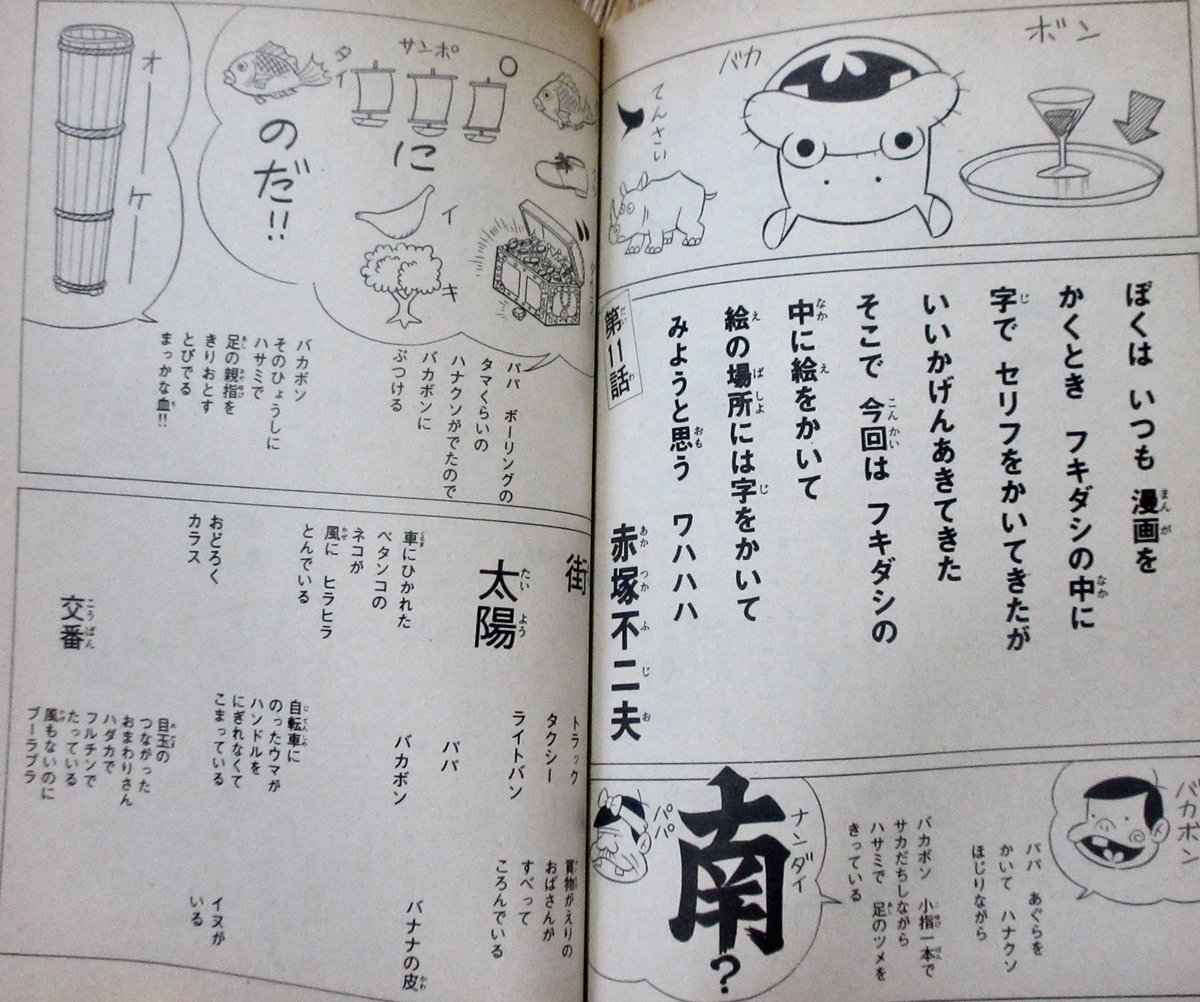 ボン
バカ
てんさい
ぼくは いつも 漫画を
かくとき フキダシの中に
字で セリフをかいてきたが
いいかげんあきてきた
そこで 今回は フキダシの
中に絵をかいて
絵の場所には字をかいて
みようと思う ワハハハ
第11話
赤塚不二夫
バカボン
パパ あぐらを
かいて ハナクソ
ほじりながら
バカボン 小指一本で
サカだちしながら
ハサミで 足のツメを
きっている
ナンダイ
南?
パパ
サンポ
に
タイ
イ
キ
のだ!!
オーケー
パパ ボーリングの
タマくらいの
ハナクソがでたので
バカボンに
ぶつける
バカボン
そのひょうしに
ハサミで
足の親指を
きりおとす
とびでる
まっかな血!!
街
トラック
タクシー
ライトバン
買物がえりの
おばさんが
すべって
ころんでいる
太陽
パパ
バカボン
バナナの皮
車にひかれた
ペタンコの
ネコが
風に ヒラヒラ
とんでいる
自転車に
のったウマが
ハンドルを
にぎれなくて
こまっている
イヌが
いる
おどろく
カラス
交番
目玉の
つながった
おまわりさん
ハダカで
フルチンで
たっている
風もないのに
ブーラブラ